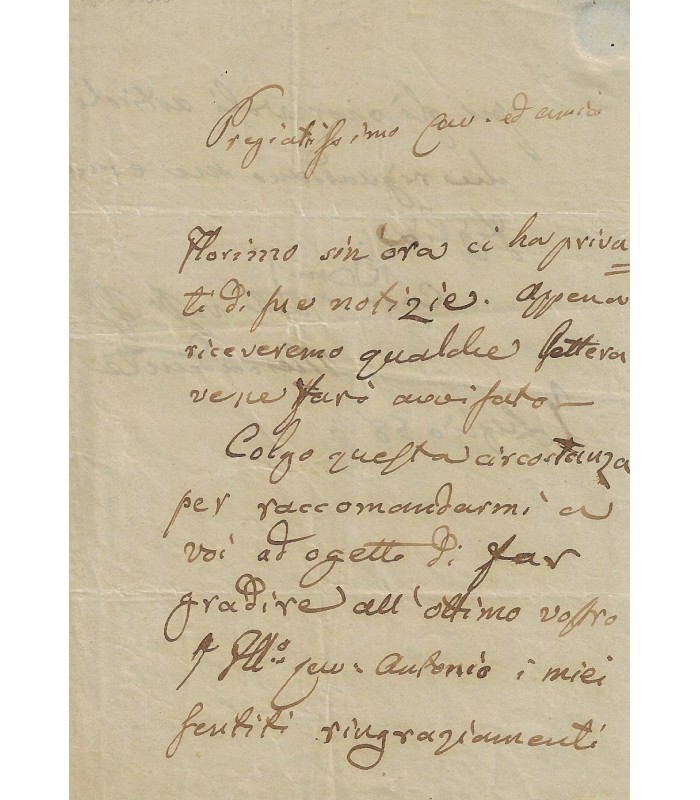 Pregiatissimo Cav. ed amico
Florimo sin ora ci ha priva=
ti di sue notizie. Appena
riceveremo qualche lettera
ve ne farò avvisato—
Colgo questa circostanza
per raccomandarmi a
voi ad ogetto di far
gradire all'ottimo vostro
Cav. Antonio i miei
sentiti ringraziamenti